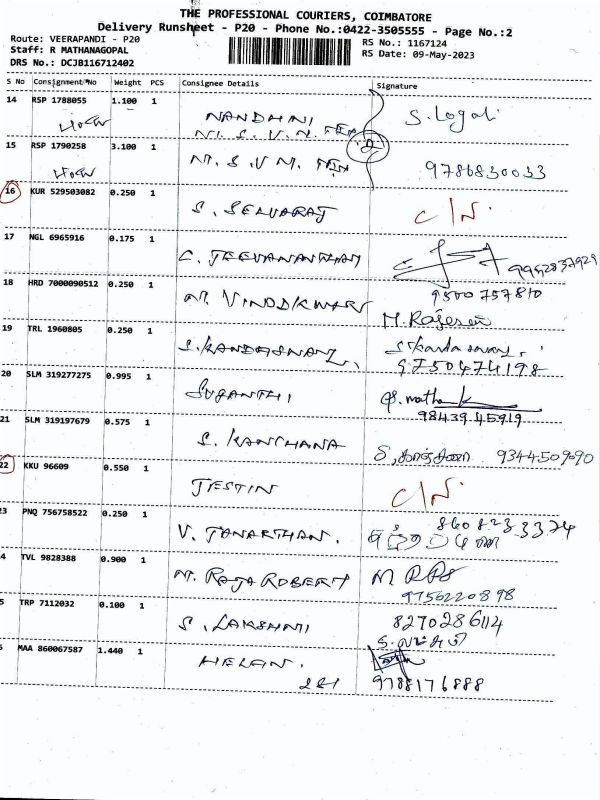 THE PROFESSIONAL COURIERS, COIMBATORE
Delivery Runsheet - P20 - Phone No.:0422-3505555 - Page No.:2
Route: VEERAPANDI - P20
Staff: R MATHANAGOPAL
DRS No.: DCJB116712402
RS No.: 1167124
RS Date: 09-May-2023
S No Consignment No Weight PCS Consignee Details Signature
14 RSP 1788055 1.100 1 NANDHINI S. Logali
M. S. V. M.
15 RSP 1790258 3.100 1 M. S. V M. 9786830033
16 KUR 529503082 0.250 1 S. SELVARAJ C/N.
17 NGL 6965916 0.175 1 C. JEEVANANTHAM 9952037929
18 HRD 7000090512 0.250 1 M. VINODKUMAR 9500757810
M. Rajesan
19 TRL 1960805 0.250 1 S. KANDASWAMY. S Kanda swamy.
9750474198
20 SLM 319277275 0.995 1 SUGANTHI
98439 45919
21 SLM 319197679 0.575 1 S. KANCHANA S. காஞ்சனா 9344509690
22 KKU 96609 0.550 1 JESTIN C/N.
23 PNQ 756758522 0.250 1 V. JANARTHAN. 8608233374
4 TVL 9828388 0.900 1 M. RAJA ROBERT M
9756220898
5 TRP 7112032 0.100 1 S. LAKSHMI 8270286114
S. லட்சுமி
6 MAA 860067587 1.440 1 HELAN.
221 9788176888